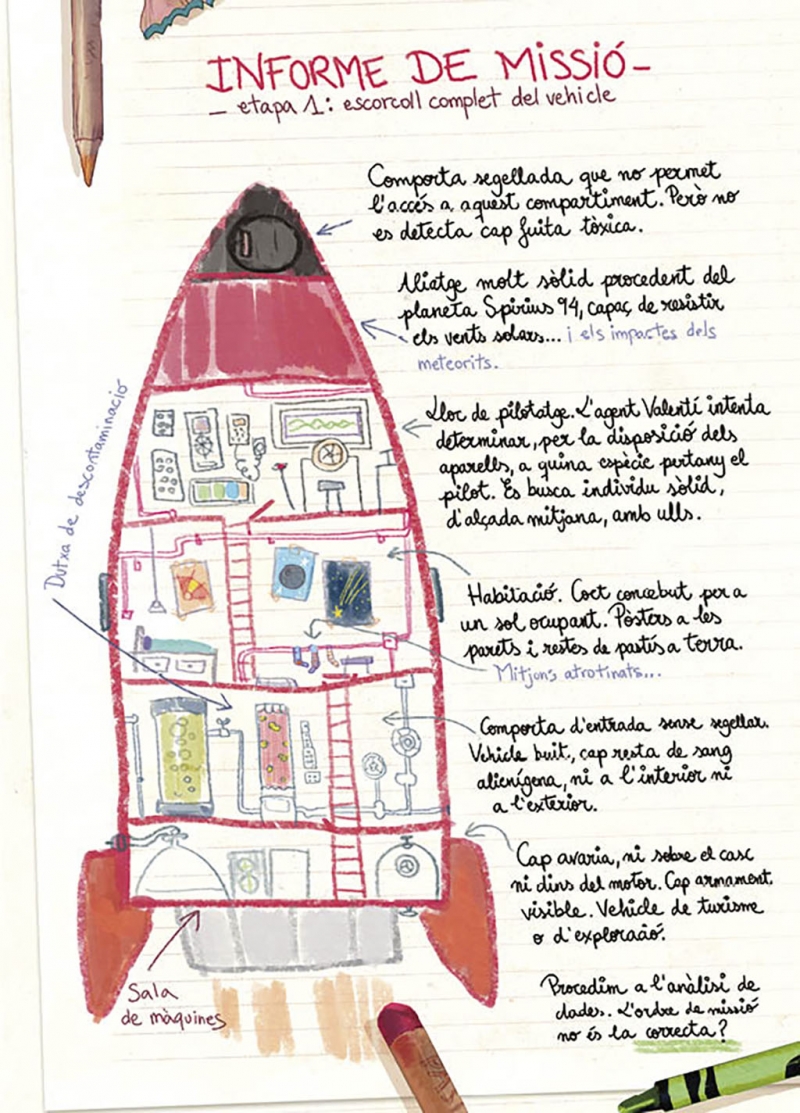 INFORME DE MISSIÓ_
_ etapa 1: escorcoll complet del vehicle
Comporta segellada que no permet
l'accés a aquest compartiment. Però no
es detecta cap fuita tòxica.
Aliatge molt sòlid procedent del
planeta Spirius 94, capaç de resistir
els vents solars... i els impactes dels
meteorits.
Lloc de pilotatge. L'agent Valentí intenta
determinar, per la disposició dels
aparells, a quina espècie pertany el
pilot. Es busca individu sòlid,
d'alçada mitjana, amb ulls.
Dutxa de descontaminació
Habitació. Coet concebut per a
un sol ocupant. Pòsters a les
parets i restes de pastís a terra.
Mitjons atrotinats...
Comporta d'entrada sense segellar.
Vehicle buit, cap resta de sang
alienígena, ni a l'interior ni
a l'exterior.
Cap avaria, ni sobre el casc
ni dins del motor. Cap armament
visible. Vehicle de turisme
o d'exploració.
Sala
de màquines
Procedim a l'anàlisi de
dades. L'ordre de missió
no és la correcta?